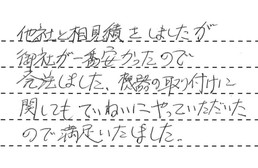 他社と相見積をしましたが
御社が一番安かったので
発注しました。機器の取り付けに
関してもていねいにやっていただいた
ので満足いたしました。